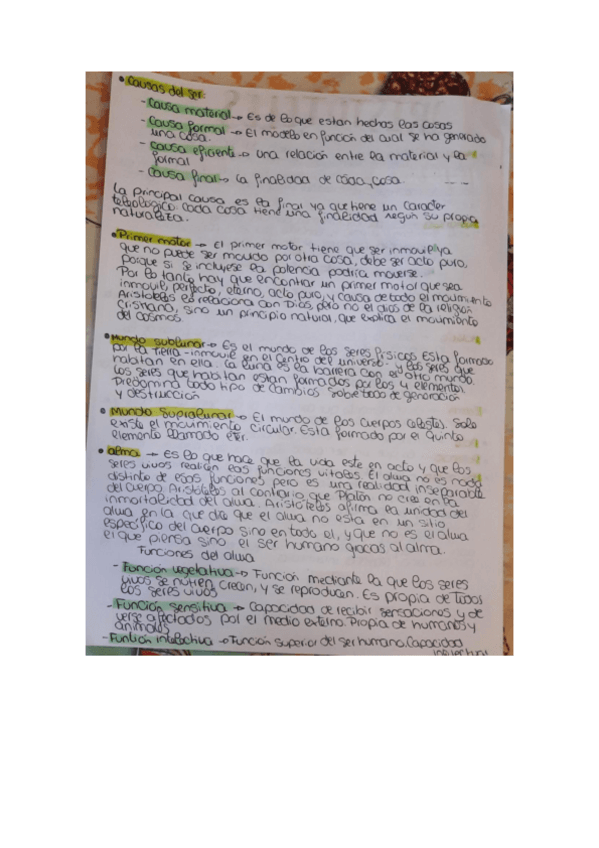 • Causas del ser:
- Causa material → Es de lo que estan hechas las cosas
- Causa formal → El modelo en función del cual se ha generado
una cosa.
- Causa eficiente → una relación entre la material y la
formal
- Causa final → La finalidad de cada cosa
La principal causa es la final ya que tiene un caracter
teleologico. Cada cosa tiene una finalidad según su propia
naturaleza.
• Primer motor → El primer motor tiene que ser inmovil ya
que no puede ser movido por otra cosa, debe ser acto puro,
porque si se incluyese la potencia podria moverse.
Por lo tanto hay que encontrar un primer motor que sea
inmovil, perfecto, eterno, acto puro, y causa de todo el movimiento
Aristoteles es relaciona con Dios, pero no el dios de la religion
cristiana, sino un principio natural, que explica el movimiento
del cosmos.
• Mundo sublunar → Es el mundo de los seres fisicos esta formado
por la Tierra -inmovil en el centro del universo- y los seres que
habitan en ella. La luna es la barrera con el otro mundo.
Los seres que habitan estan formados por los 4 elementos.
Predomina todo tipo de cambios sobre todo de generación
y destrucción
• Mundo Supralunar → El mundo de los cuerpos celestes. Solo
existe el movimiento circular. Esta formado por el quinto
elemento llamado eter.
• alma → Es lo que hace que la vida este en acto y que los
seres vivos realicen las funciones vitales. El alma no es nada
distinto de esas funciones pero es una realidad inseparable
del cuerpo. Aristoteles al contrario que Platón no cree en la
inmortalidad del alma. Aristoteles afirma la unidad del
alma en la que dice que el alma no esta en un sitio
especifico del cuerpo sino en todo el, y que no es el alma
el que piensa sino el ser humano gracias al alma.
Funciones del alma
- Función vegetativa → Función mediante la que los seres
vivos se nutren, crecen, y se reproducen. Es propia de todos
los seres vivos
- Función sensitiva → Capacidad de recibir sensaciones y de
verse afectados por el medio externo. Propia de humanos y
animales
- Función intelectiva → Función superior del ser humano. Capacidad
intelectual